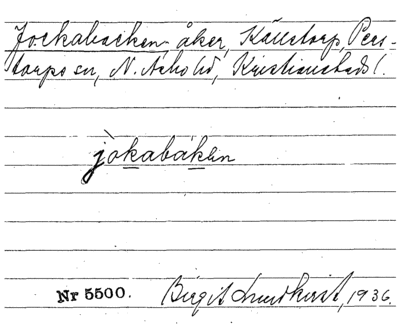 Jockabacken, åker, Källstorp, Pers-
torps sn, N. Åsbo hd, Kristianstads l.
jòkabàken
Nr 5500.
Birgit Lundkvist, 1936.